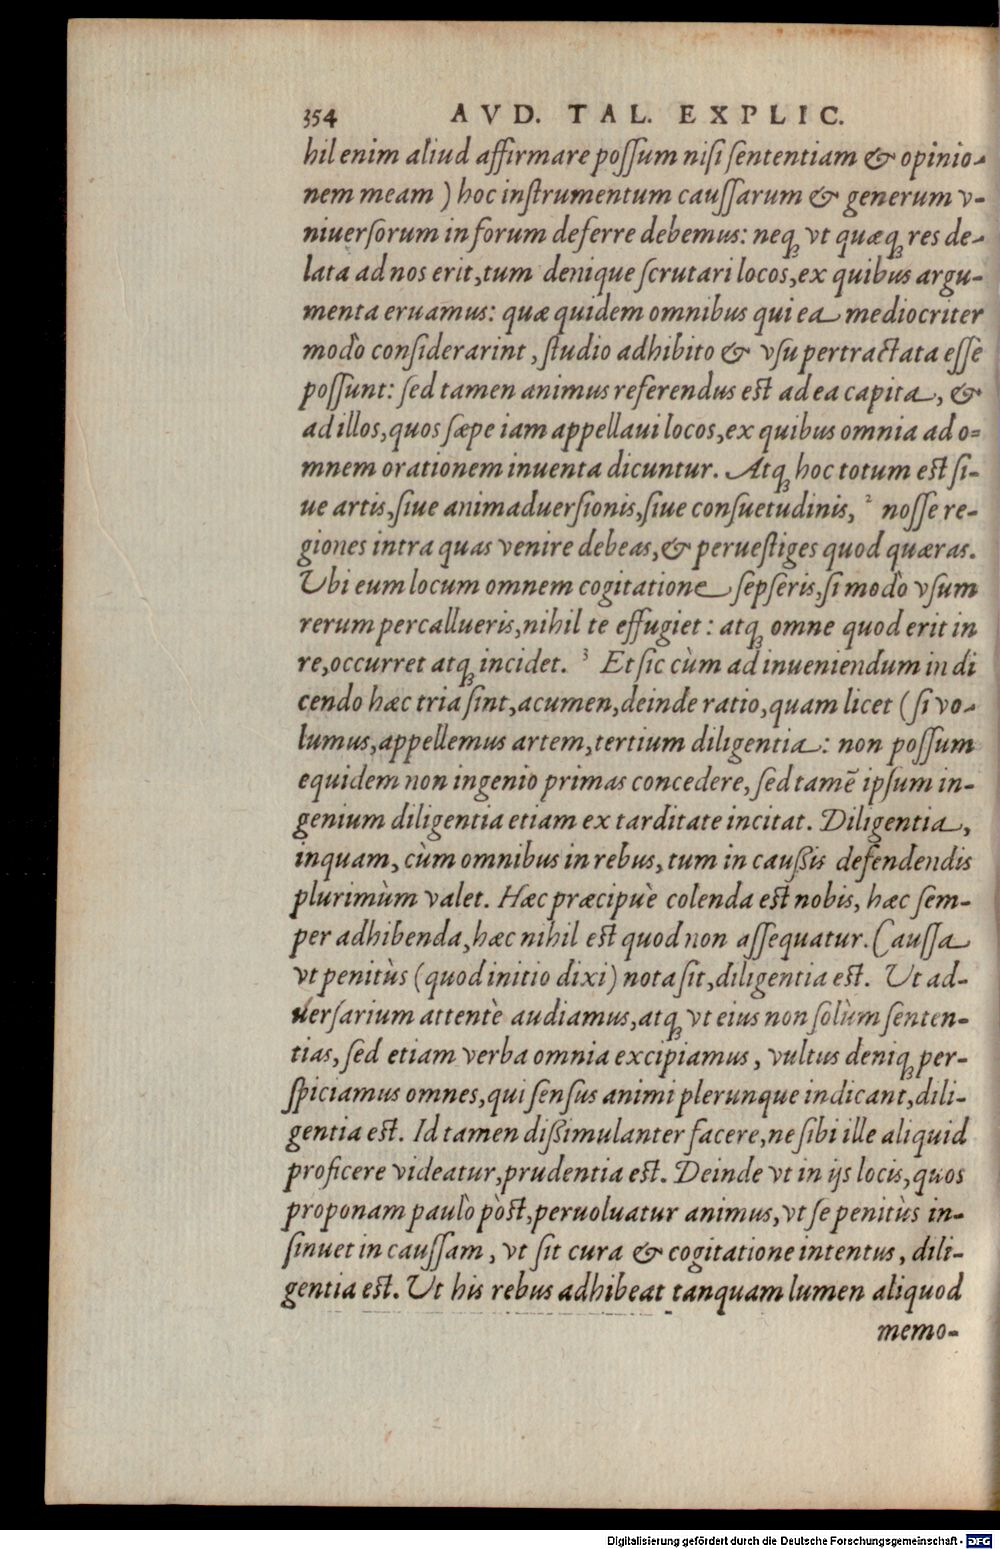 354 AVD. TAL. EXPLIC.
hil enim aliud affirmare possum nisi sententiam & opinio-
nem meam ) hoc instrumentum caussarum & generum v-
niuersorum in forum deferre debemus: neqꝫ vt quæqꝫ res de-
lata ad nos erit, tum denique scrutari locos, ex quibus argu-
menta eruamus: quæ quidem omnibus qui ea mediocriter
modò considerarint, studio adhibito & vsu pertractata esse
possunt: sed tamen animus referendus est ad ea capita, &
ad illos, quos sæpe iam appellaui locos, ex quibus omnia ad o-
mnem orationem inuenta dicuntur. Atqꝫ hoc totum est si-
ue artis, siue animaduersionis, siue consuetudinis, ² nosse re-
giones intra quas venire debeas, & peruestiges quod quæras.
Ubi eum locum omnem cogitatione sepseris, si modò vsum
rerum percallueris, nihil te effugiet: atqꝫ omne quod erit in
re, occurret atqꝫ incidet. ³ Et sic cùm ad inueniendum in di
cendo hæc tria sint, acumen, deinde ratio, quam licet ( si vo-
lumus, appellemus artem, tertium diligentia: non possum
equidem non ingenio primas concedere, sed tamē ipsum in-
genium diligentia etiam ex tarditate incitat. Diligentia,
inquam, cùm omnibus in rebus, tum in caußis defendendis
plurimùm valet. Hæc præcipuè colenda est nobis, hæc sem-
per adhibenda, hæc nihil est quod non assequatur. Caussa
vt penitùs (quod initio dixi) nota sit, diligentia est. Ut ad-
uersarium attentè audiamus, atqꝫ vt eius non solùm senten-
tias, sed etiam verba omnia excipiamus, vultus deniqꝫ per-
spiciamus omnes, qui sensus animi plerunque indicant, dili-
gentia est. Id tamen dißimulanter facere, ne sibi ille aliquid
proficere videatur, prudentia est. Deinde vt in ijs locis, quos
proponam paulò pòst, peruoluatur animus, vt se penitùs in-
sinuet in caussam, vt sit cura & cogitatione intentus, dili-
gentia est. Ut his rebus adhibeat tanquam lumen aliquod
memo-
Digitalisierung gefördert durch die Deutsche Forschungsgemeinschaft - DFG